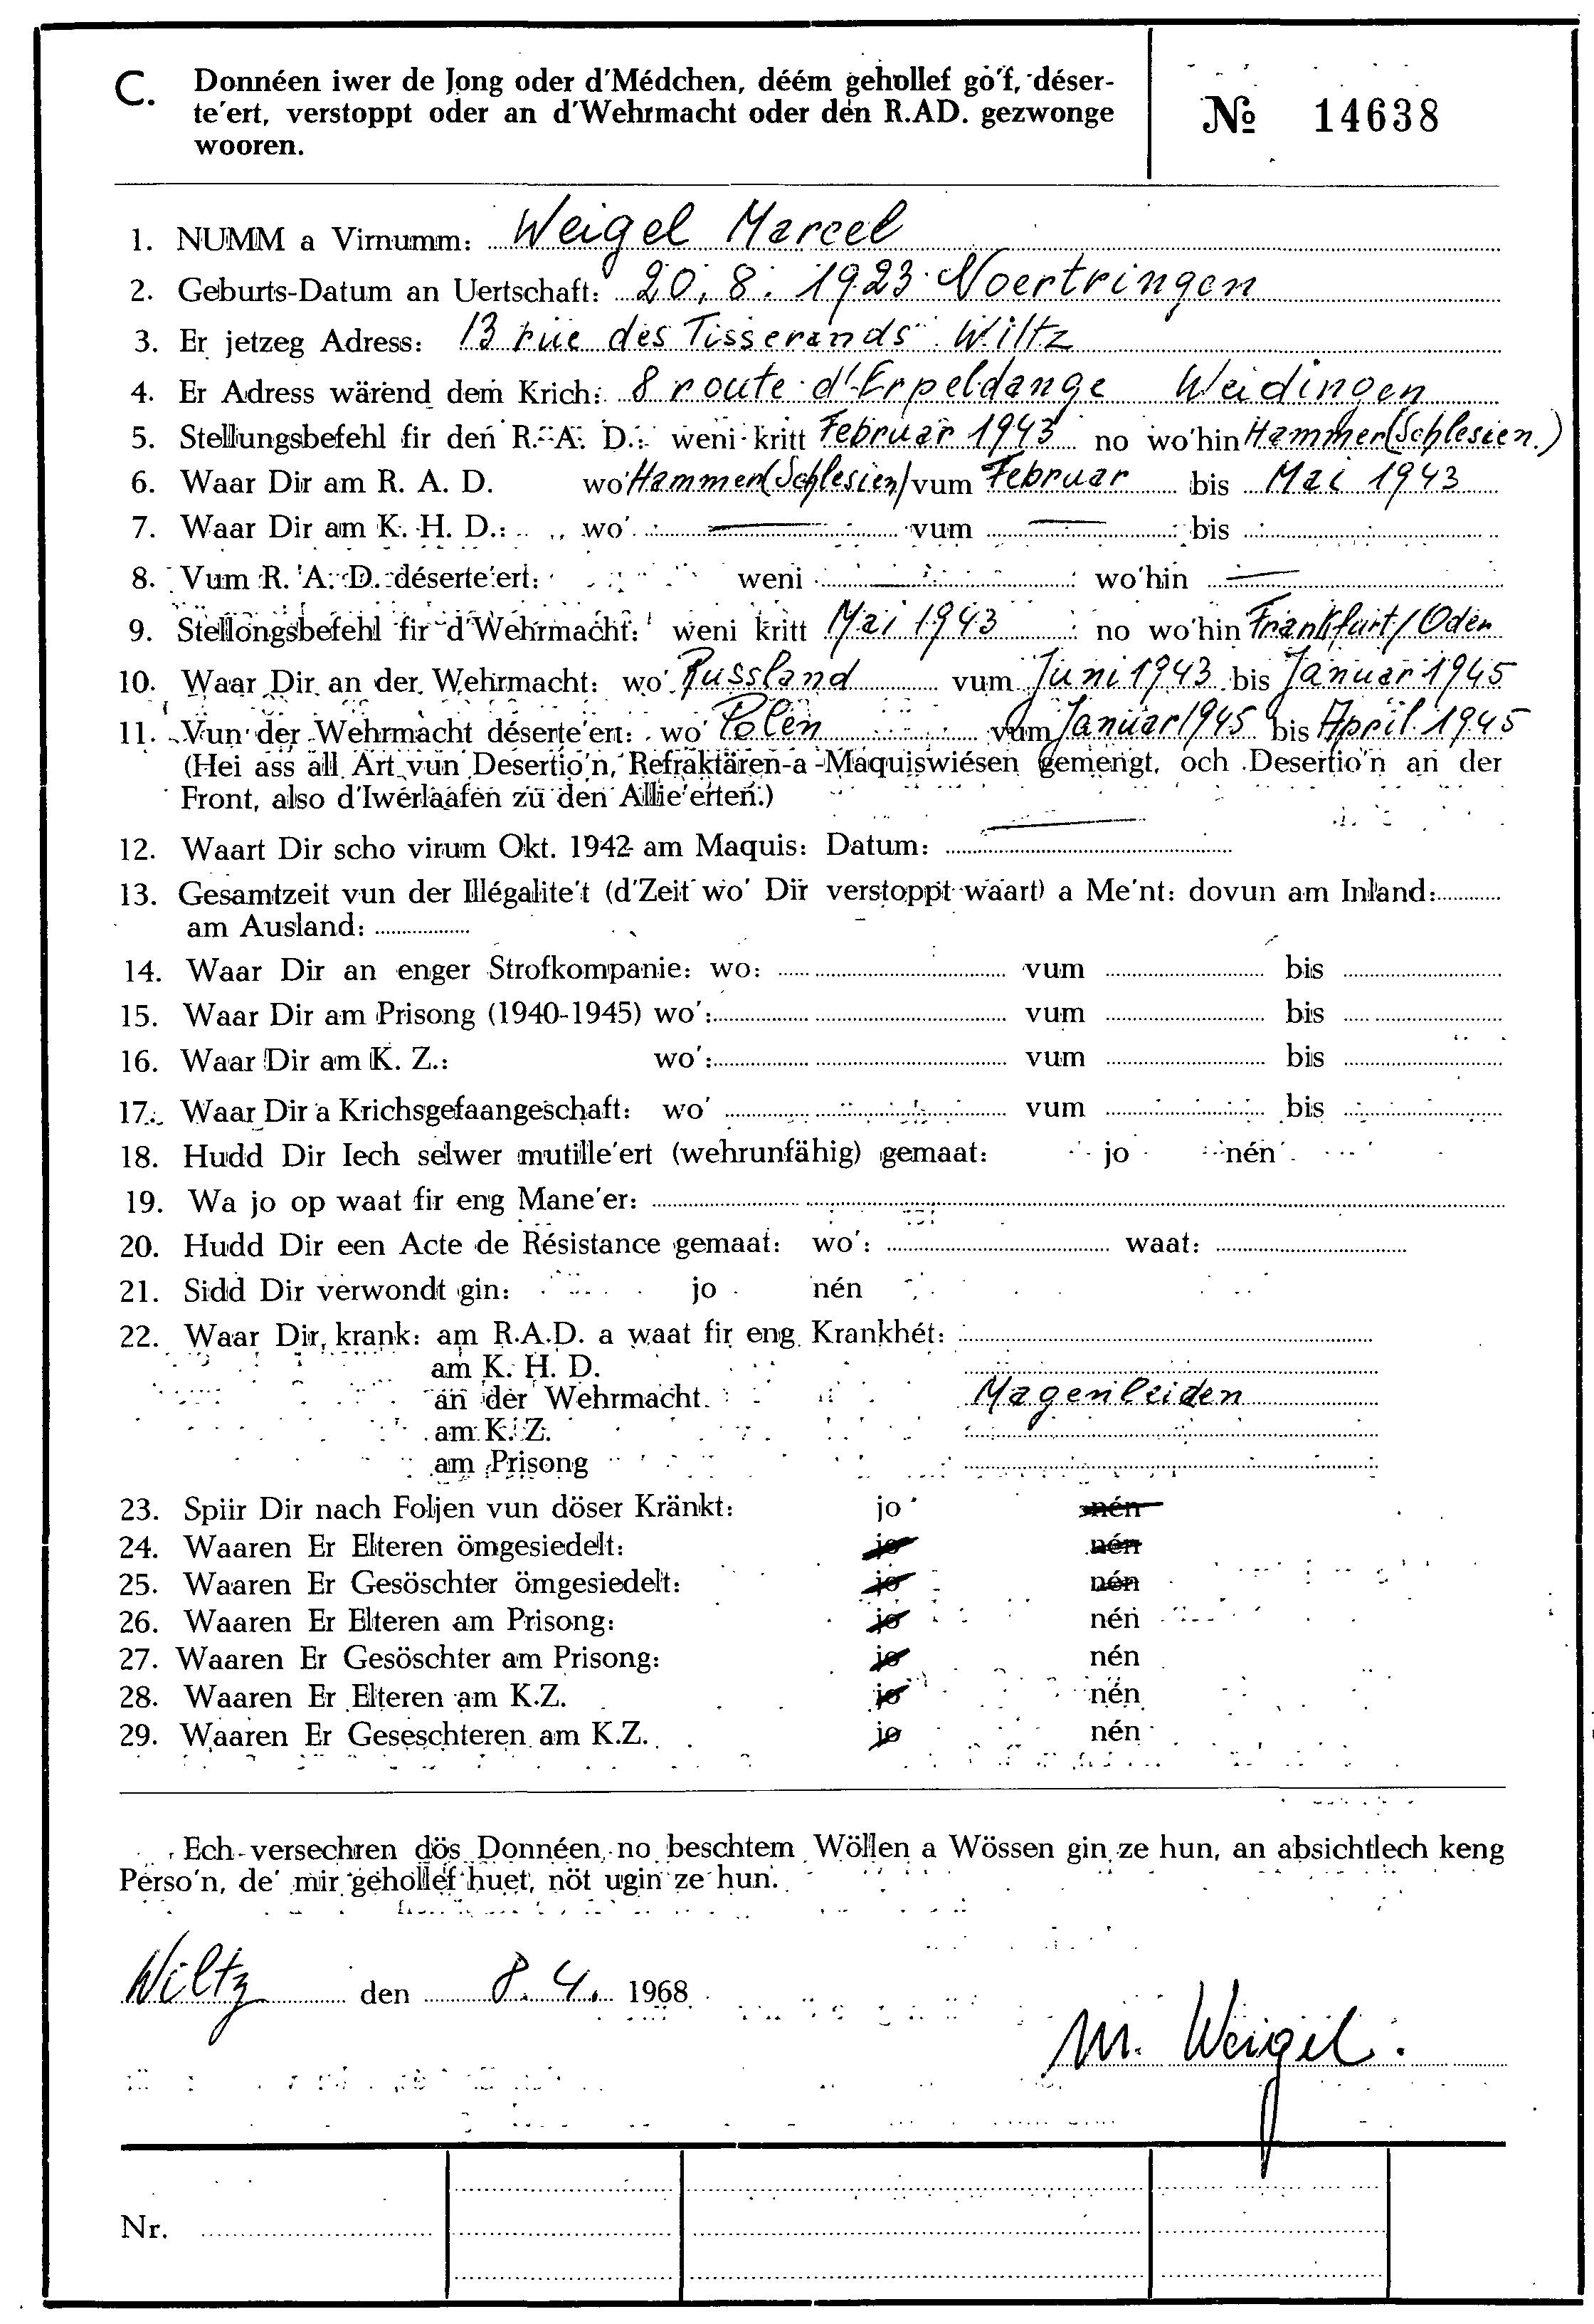 C. Donnéen iwer de Jong oder d'Médchen, déém gehollef go'f, déser-
te'ert, verstoppt oder an d'Wehrmacht oder den R.AD. gezwonge
wooren.
№ 14638
1. NUMM a Virnumm: Weigel Marcel
2. Geburts-Datum an Uertschaft: 20. 8. 1923 Noertringen
3. Er jetzeg Adress: 13 rue des Tisserands Wiltz
4. Er Adress wärend dem Krich: 8 route d'Erpeldange Weidingen
5. Stellungsbefehl fir den R. A. D.: weni kritt Februar 1943 no wo'hin Hammer (Schlesien.)
6. Waar Dir am R. A. D. wo' Hammer (Schlesien) vum Februar bis Mai 1943
7. Waar Dir am K. H. D.: wo' — vum — bis
8. Vum R. A. D. déserte'ert: weni — wo'hin —
9. Stellongsbefehl fir d'Wehrmacht: weni kritt Mai 1943 no wo'hin Frankfurt/Oder
10. Waar Dir an der Wehrmacht: wo' Russland vum Juni 1943 bis Januar 1945
11. Vun der Wehrmacht déserte'ert: wo' Polen vum Januar 1945 bis April 1945
(Hei ass all Art vun Desertio'n, Refraktären-a-Maquiswiésen gemengt, och Desertio'n an der
Front, also d'Iwerlaafen zu den Allie'erten.)
12. Waart Dir scho virum Okt. 1942 am Maquis: Datum: —
13. Gesamtzeit vun der Illégalite't (d'Zeit wo' Dir verstoppt waart) a Me'nt: dovun am Inland:
am Ausland:
14. Waar Dir an enger Strofkompanie: wo: vum bis
15. Waar Dir am Prisong (1940-1945) wo': vum bis
16. Waar Dir am K. Z.: wo': vum bis
17. Waar Dir a Krichsgefaangeschaft: wo' vum bis
18. Hudd Dir Iech selwer mutille'ert (wehrunfähig) gemaat: jo nén
19. Wa jo op waat fir eng Mane'er:
20. Hudd Dir een Acte de Résistance gemaat: wo': waat:
21. Sidd Dir verwondt gin: jo nén
22. Waar Dir krank: am R.A.D. a waat fir eng Krankhét:
am K. H. D.
an der Wehrmacht Magenleiden
am K. Z.
am Prisong
23. Spiir Dir nach Foljen vun döser Kränkt: jo nén
24. Waaren Er Elteren ömgesiedelt: jo nén
25. Waaren Er Gesöschter ömgesiedelt: jo nén
26. Waaren Er Elteren am Prisong: jo nén
27. Waaren Er Gesöschter am Prisong: jo nén
28. Waaren Er Elteren am K.Z. jo nén
29. Waaren Er Geseschteren am K.Z. jo nén
Ech versechren dös Donnéen no beschtem Wöllen a Wössen gin ze hun, an absichtlech keng
Perso'n, de' mir gehollef huet, nöt ugin ze hun.
Wiltz den 8. 4. 1968
M. Weigel.
Nr.